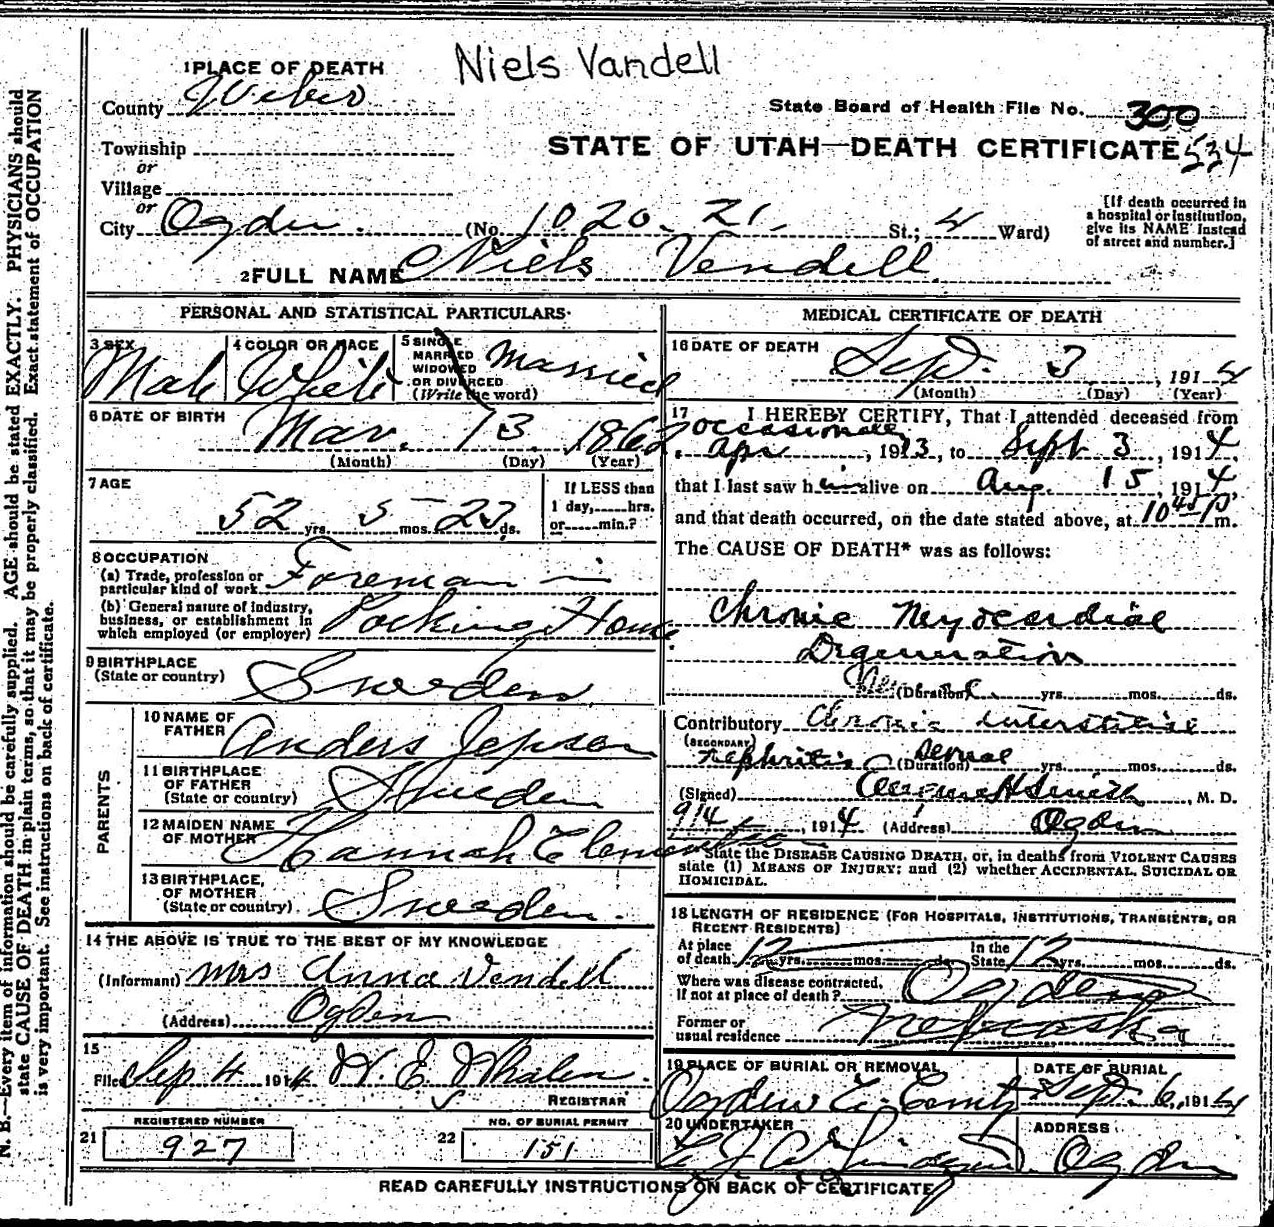 Niels Vandell
1 PLACE OF DEATH
County Weber
State Board of Health File No. 300
Township
STATE OF UTAH—DEATH CERTIFICATE 534
or
Village
or
City Ogden. (No. 1020. 21. St.; 4 Ward)
[If death occurred in a hospital or institution, give its NAME instead of street and number.]
2 FULL NAME Niels Vendell
PERSONAL AND STATISTICAL PARTICULARS
3 SEX Male
4 COLOR OR RACE White
5 SINGLE MARRIED WIDOWED OR DIVORCED (Write the word) Married
6 DATE OF BIRTH Mar. 13. 1862
(Month) (Day) (Year)
7 AGE
52 yrs. 5 mos. 23 ds.
If LESS than 1 day,.....hrs. or.....min.?
8 OCCUPATION
(a) Trade, profession or particular kind of work Foreman in
(b) General nature of industry, business, or establishment in which employed (or employer) Packing House
9 BIRTHPLACE (State or country) Sweden.
PARENTS
10 NAME OF FATHER Anders Jepson
11 BIRTHPLACE OF FATHER (State or country) Sweden
12 MAIDEN NAME OF MOTHER Hannah
13 BIRTHPLACE OF MOTHER (State or country) Sweden.
14 THE ABOVE IS TRUE TO THE BEST OF MY KNOWLEDGE
(Informant) Mrs Anna Vendell
(Address) Ogden
15
Filed Sep 4 1914 W. E. Whalen
REGISTRAR
REGISTERED NUMBER
21 927
NO. OF BURIAL PERMIT
22 151
MEDICAL CERTIFICATE OF DEATH
16 DATE OF DEATH Sept. 3, 1914
(Month) (Day) (Year)
17 I HEREBY CERTIFY, That I attended deceased from
occasionally
Apr, 1913, to Sept 3, 1914.
that I last saw him alive on Aug. 15, 1914
and that death occurred, on the date stated above, at 10 45 P m.
The CAUSE OF DEATH* was as follows:
Chronic Myocardial
Degeneration
(Duration) yrs. mos. ds.
Contributory Chronic interstitial
(SECONDARY) nephritis (Duration) yrs. mos. ds.
(Signed) H Smith, M. D.
9/4, 1914 (Address) Ogden
* State the DISEASE CAUSING DEATH, or, in deaths from VIOLENT CAUSES
state (1) MEANS OF INJURY; and (2) whether ACCIDENTAL, SUICIDAL OR
HOMICIDAL.
18 LENGTH OF RESIDENCE (FOR HOSPITALS, INSTITUTIONS, TRANSIENTS, OR
RECENT RESIDENTS)
At place of death 12 yrs. mos. ds. In the State 12 yrs. mos. ds.
Where was disease contracted, if not at place of death? Ogden
Former or usual residence Nebraska
19 PLACE OF BURIAL OR REMOVAL
Ogden
DATE OF BURIAL
Sept. 6, 1914
20 UNDERTAKER
ADDRESS
Ogden
READ CAREFULLY INSTRUCTIONS ON BACK OF CERTIFICATE
N. B.—Every item of information should be carefully supplied. AGE should be stated EXACTLY. PHYSICIANS should
state CAUSE OF DEATH in plain terms, so that it may be properly classified. Exact statement of OCCUPATION
is very important. See instructions on back of certificate.